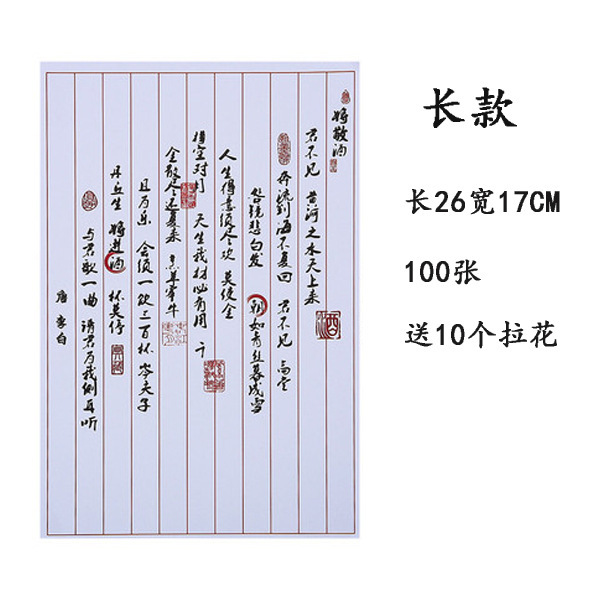 将敬酒
君不见 黄河之水天上来
酒
奔流到海不复回 君不见 高堂
明镜悲白发 朝如青丝暮成雪
人生得意须尽欢 莫使金
樽空对月 天生我材必有用 千
金散尽还复来 烹羊宰牛
且为乐 会须一饮三百杯 岑夫子
丹丘生 将进酒 杯莫停
与君歌一曲 请君为我侧耳听
唐 李白
长款
长26宽17CM
100张
送10个拉花